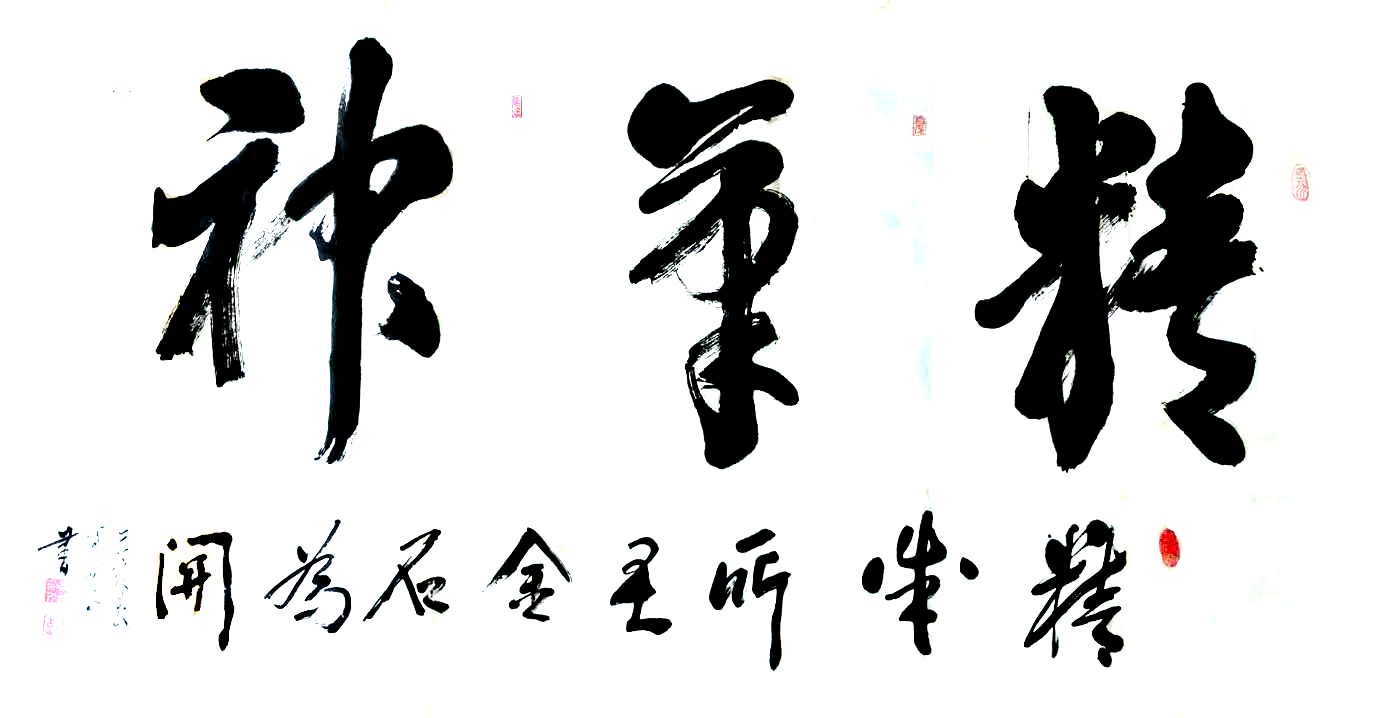 精氣神
精誠所至金石為開
書